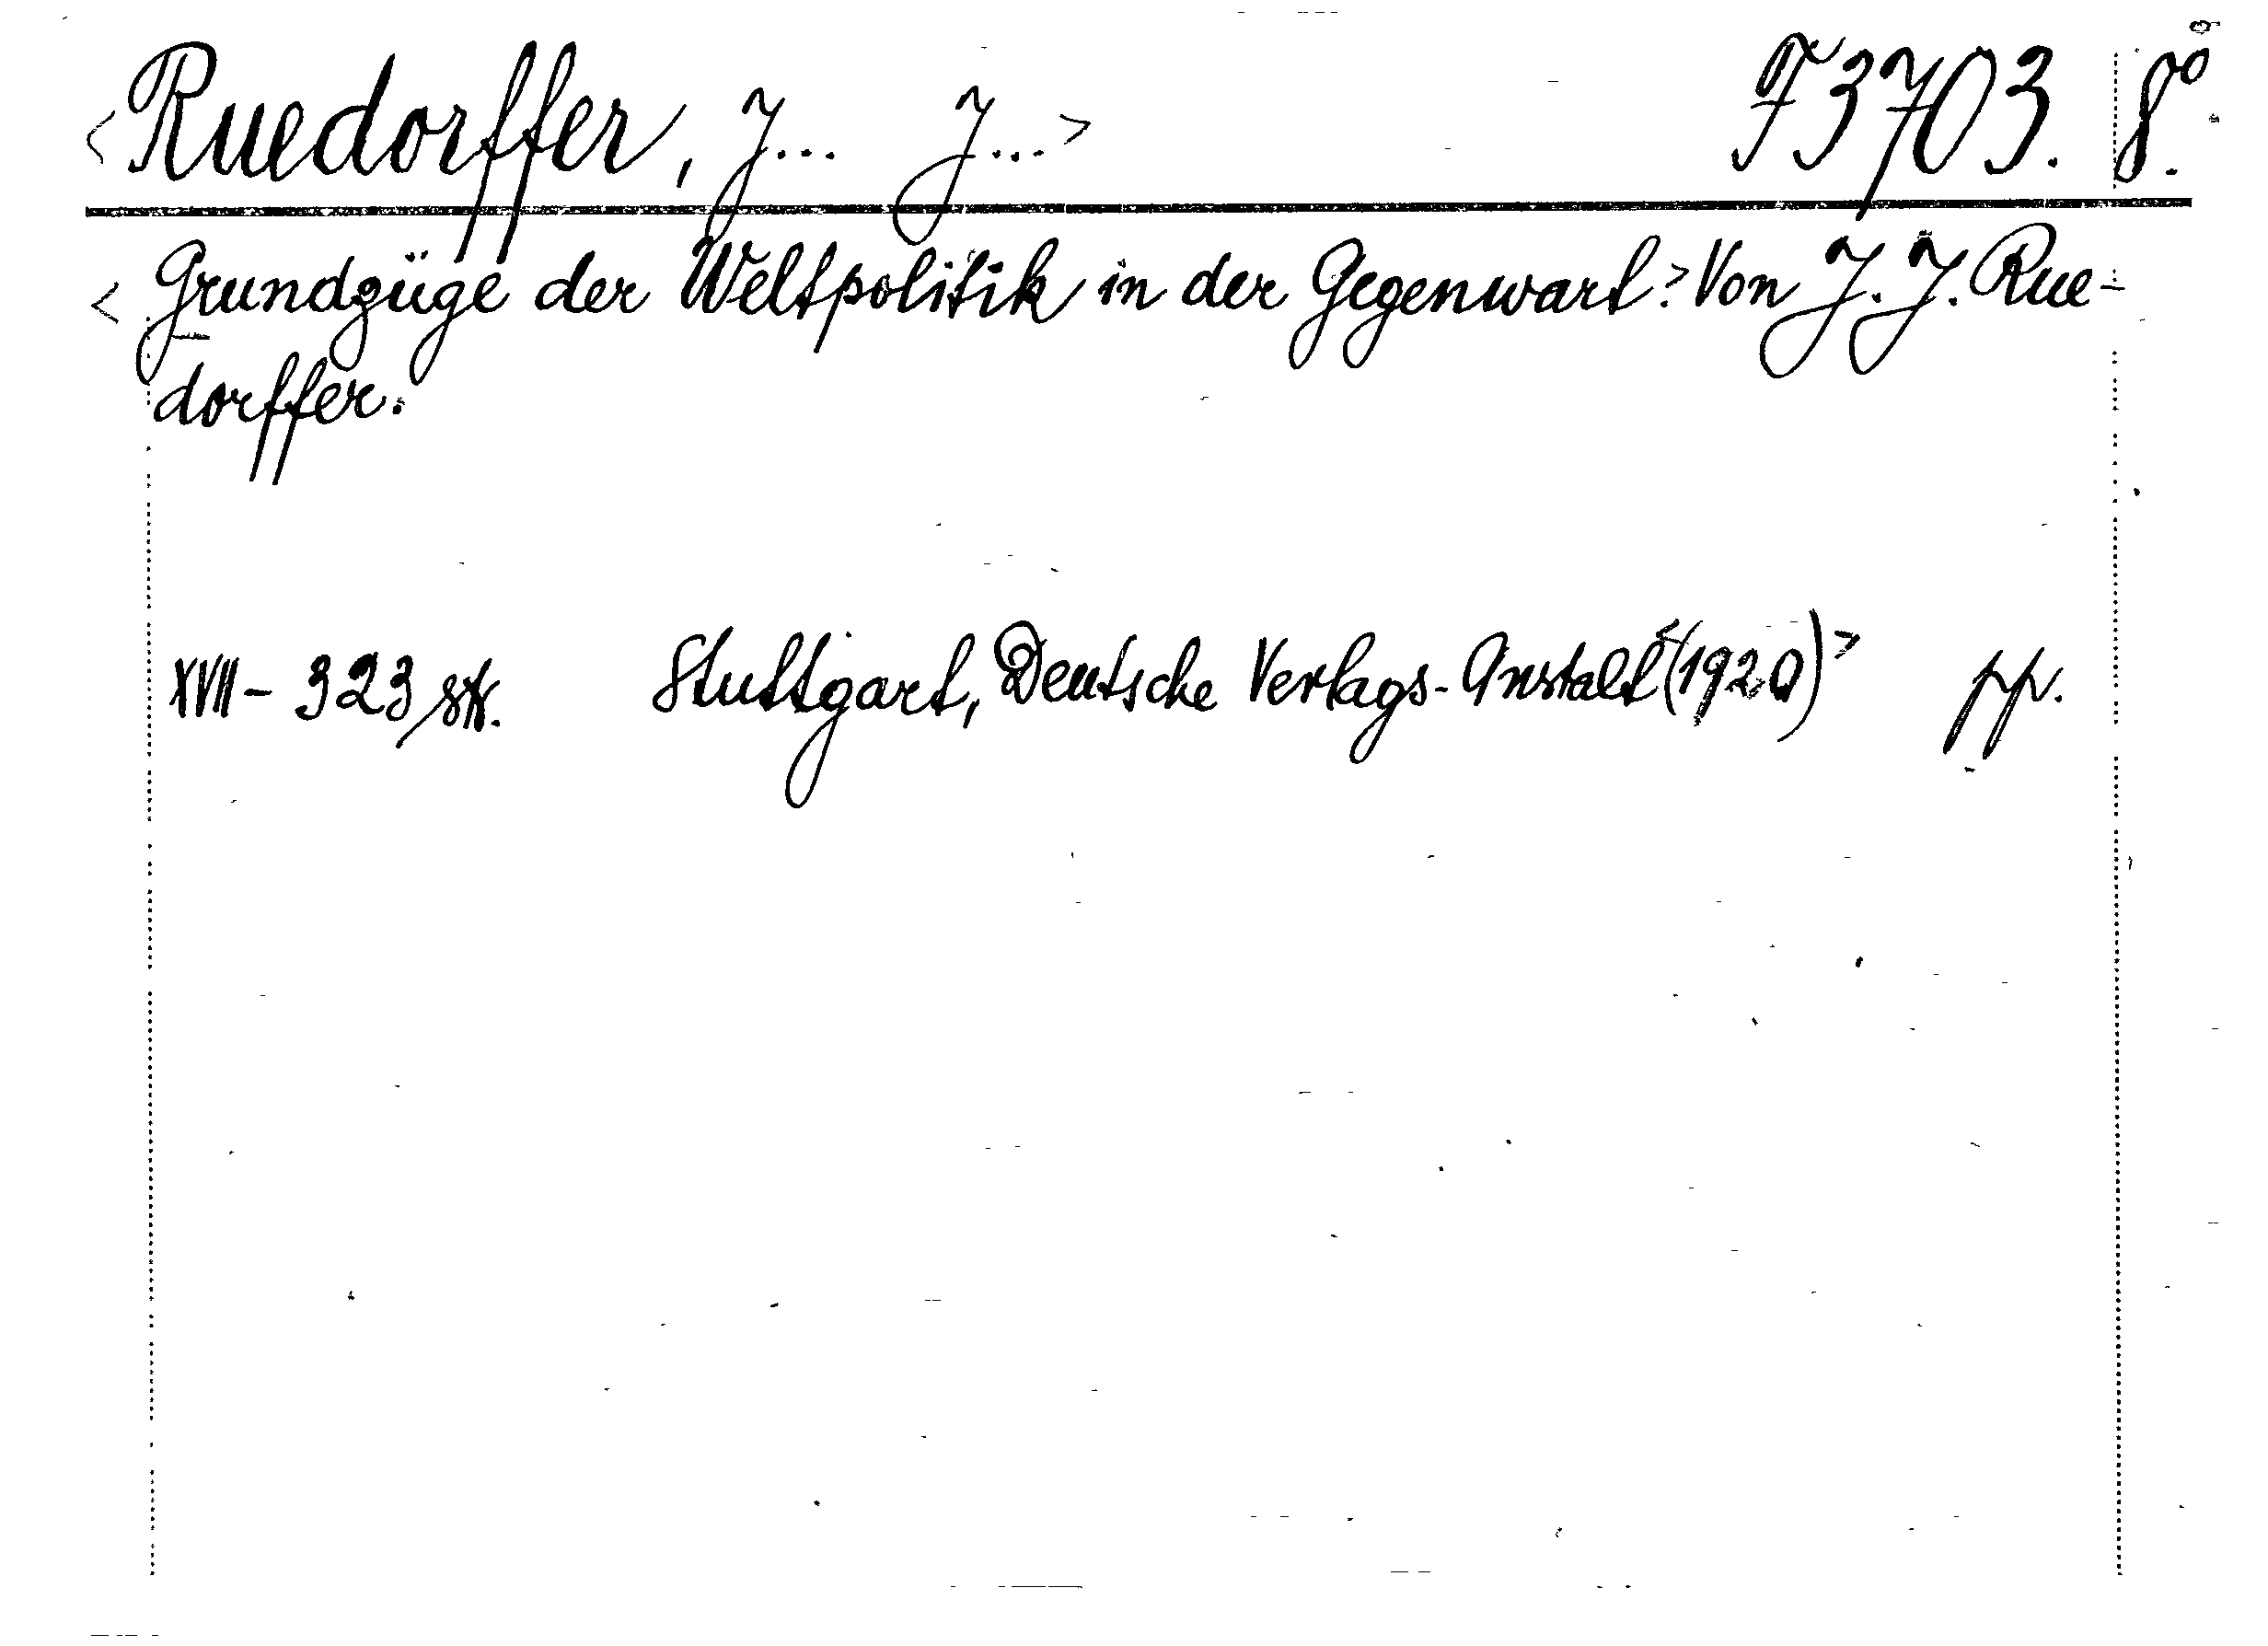 <Ruedorffer, J... J...> F3703. 8º.
<Grundzüge der Weltpolitik in der Gegenwart.> Von J. J. Rue-
dorffer.
XVII - 323 str. Stuttgart, Deutsche Verlags-Anstalt <(1920)> pp.